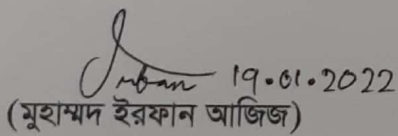 Irfan 19.01.2022
(মুহাম্মদ ইরফান আজিজ)